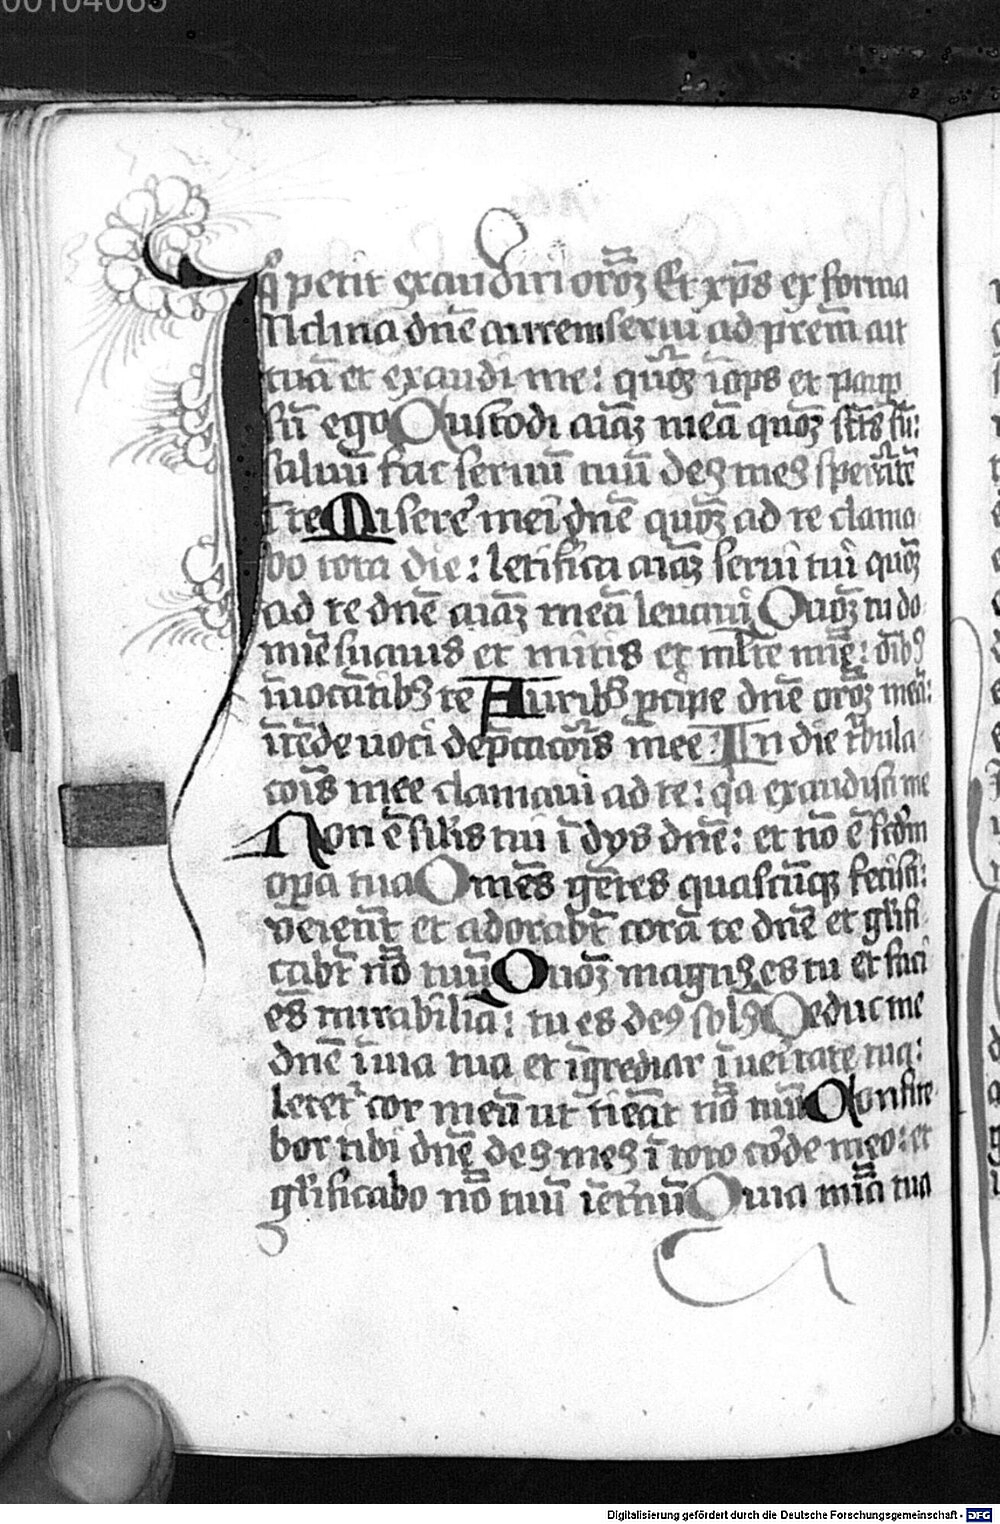 00104065
q̄ petit exaudiri orōꝫ Et xp̄s ex forma
INclina dn̄e aurem serui ad prem̄ ait
tuā et exaudi me: quōꝫ īops et paup̄
sū ego Custodi aīaꝫ meā quōꝫ sc̄tꝰs sū:
saluū fac seruū tuū deꝰ meꝰ sperātē
ī te Misere᷒ mei dn̄e quōꝫ ad te clama
bo tota die: letifica aīaꝫ serui tui quōꝫ
ad te dn̄e aīaꝫ meā leuaui Quōꝫ tu do
mīe suauis et mitis et ml̄te mīe: oīb⁹
īuocātib⁹ te Aurib⁹ ꝑcipe dn̄e orōꝫ meā:
ītēde uoci dep̄catiōis mee In die tͥbula
cōis mee clamaui ad te: qͥa exaudisti me
Non ē silis tui ī dys dn̄e: et nō ē scd̄m
oꝑa tua Omēs gētes quascūqꝫ fecisti:
veīent et adorabt̄ corā te dn̄e et gl̄ifi
cabt̄ nō tuū Quōꝫ magn⁹ es tu et faci
ēs mirabilia: tu es de⁹ sol⁹ Deduc me
dn̄e ī uia tua et īgrediar ī ueītate tua:
letet᷒ cor meū ut tīeat nō tuū Confite
bor tibi dn̄e de⁹ me⁹ ī toto cōde meo: et
gl̄ificabo nō tuū īet̄nū Quia mīa tua
Digitalisierung gefördert durch die Deutsche Forschungsgemeinschaft - DFG